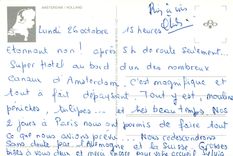 AMSTERDAM / HOLLAND
Lundi 26 octobre 15 heures
Etonnant non! après 5 h de route seulement...
Super hotel au bord d'un des nombreux
Canaux d'Amsterdam. C'est magnifique et
tout à fait dépaysant. Tout y est, moulins
péniches, tulipes... et les beau temps. Nos
2 jours à Paris nous ont permis de faire tout
ce que nous avions prévu. Nous redescendons
Sans doute par l'Allemagne et la Suisse. Grosses
bises à vous deux et merci encore pour votre accueil